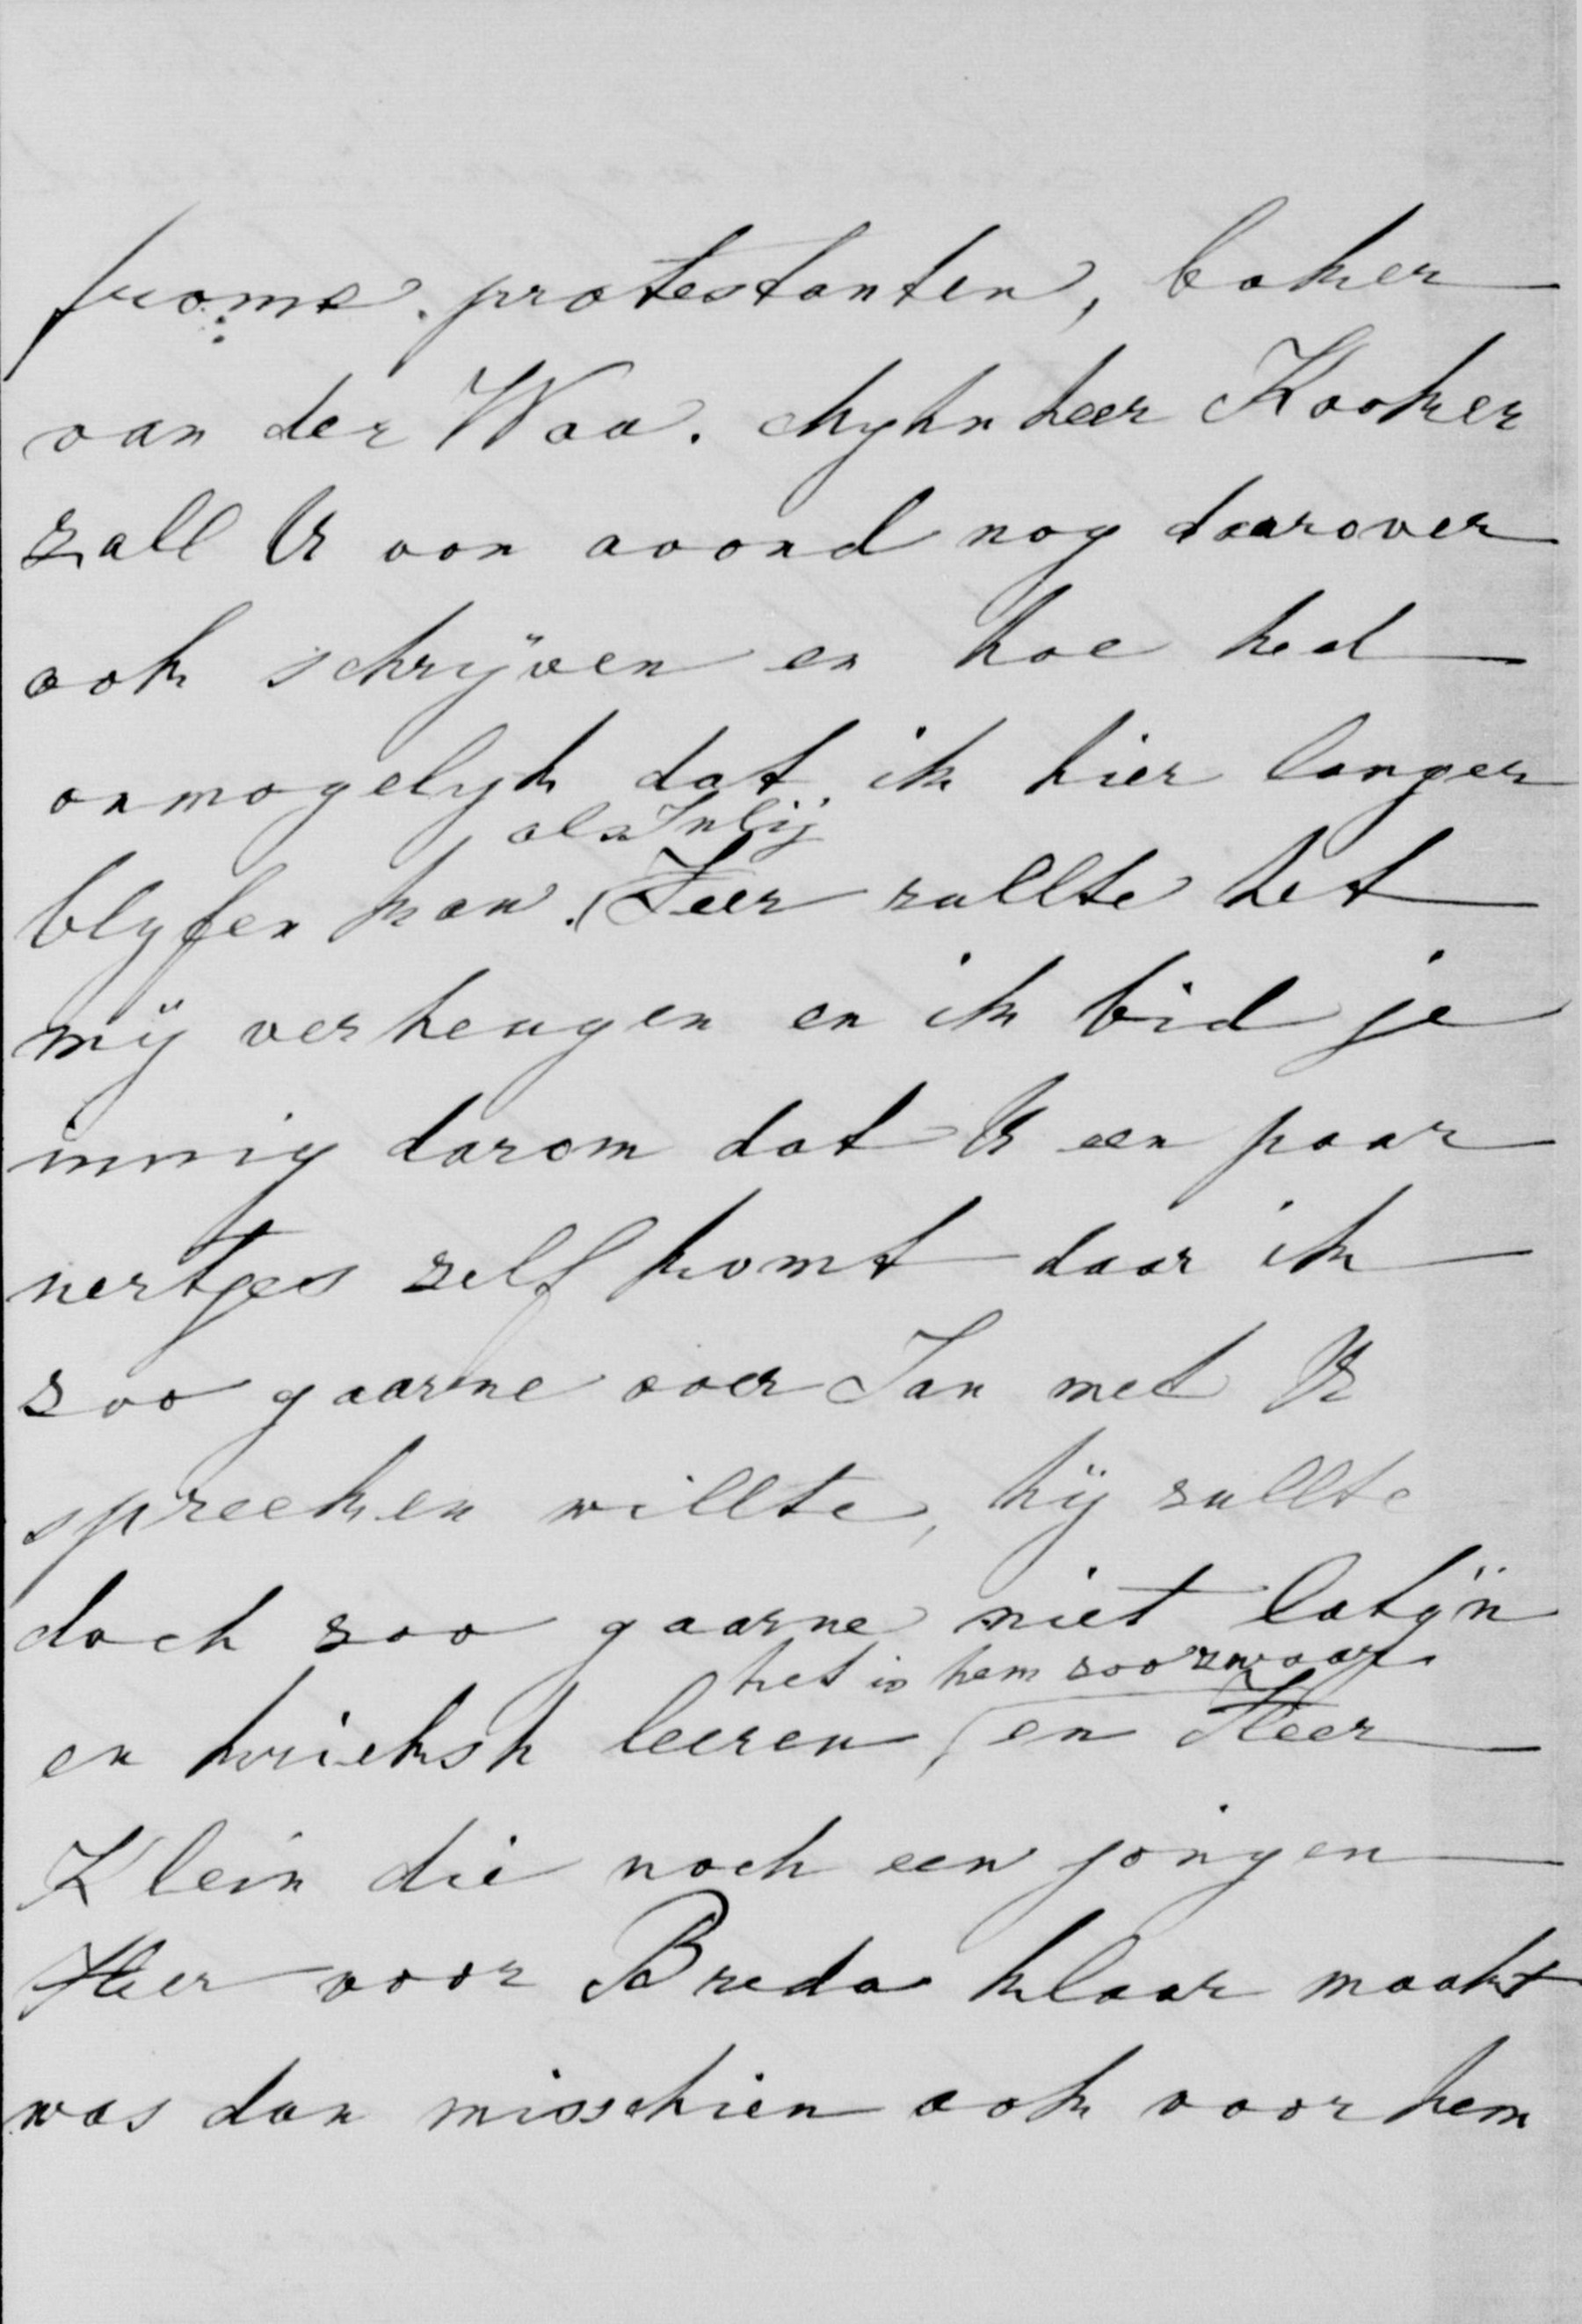 frome protestanten, baker
van der Waa. Myhnheer Kooker
zall U van avond nog daarover
ook schrijven en hoe hed
onmogelyk dat ik hier langer
als Juli
blyfen kan. Zeer zullte het
mij verheugen en ik bid je
innig darom dat U een paar
uertjes zelf komt daar ik
zoo gaarne over Jan met U
spreeken willte, hij zullte
doch zoo gaarne niet latijn
het is hem zoo zwaar
en krieksk leeren, en Heer
Klein die noch een jongen
Heer voor Breda klaar maakt
was dan misschien ook voor hem